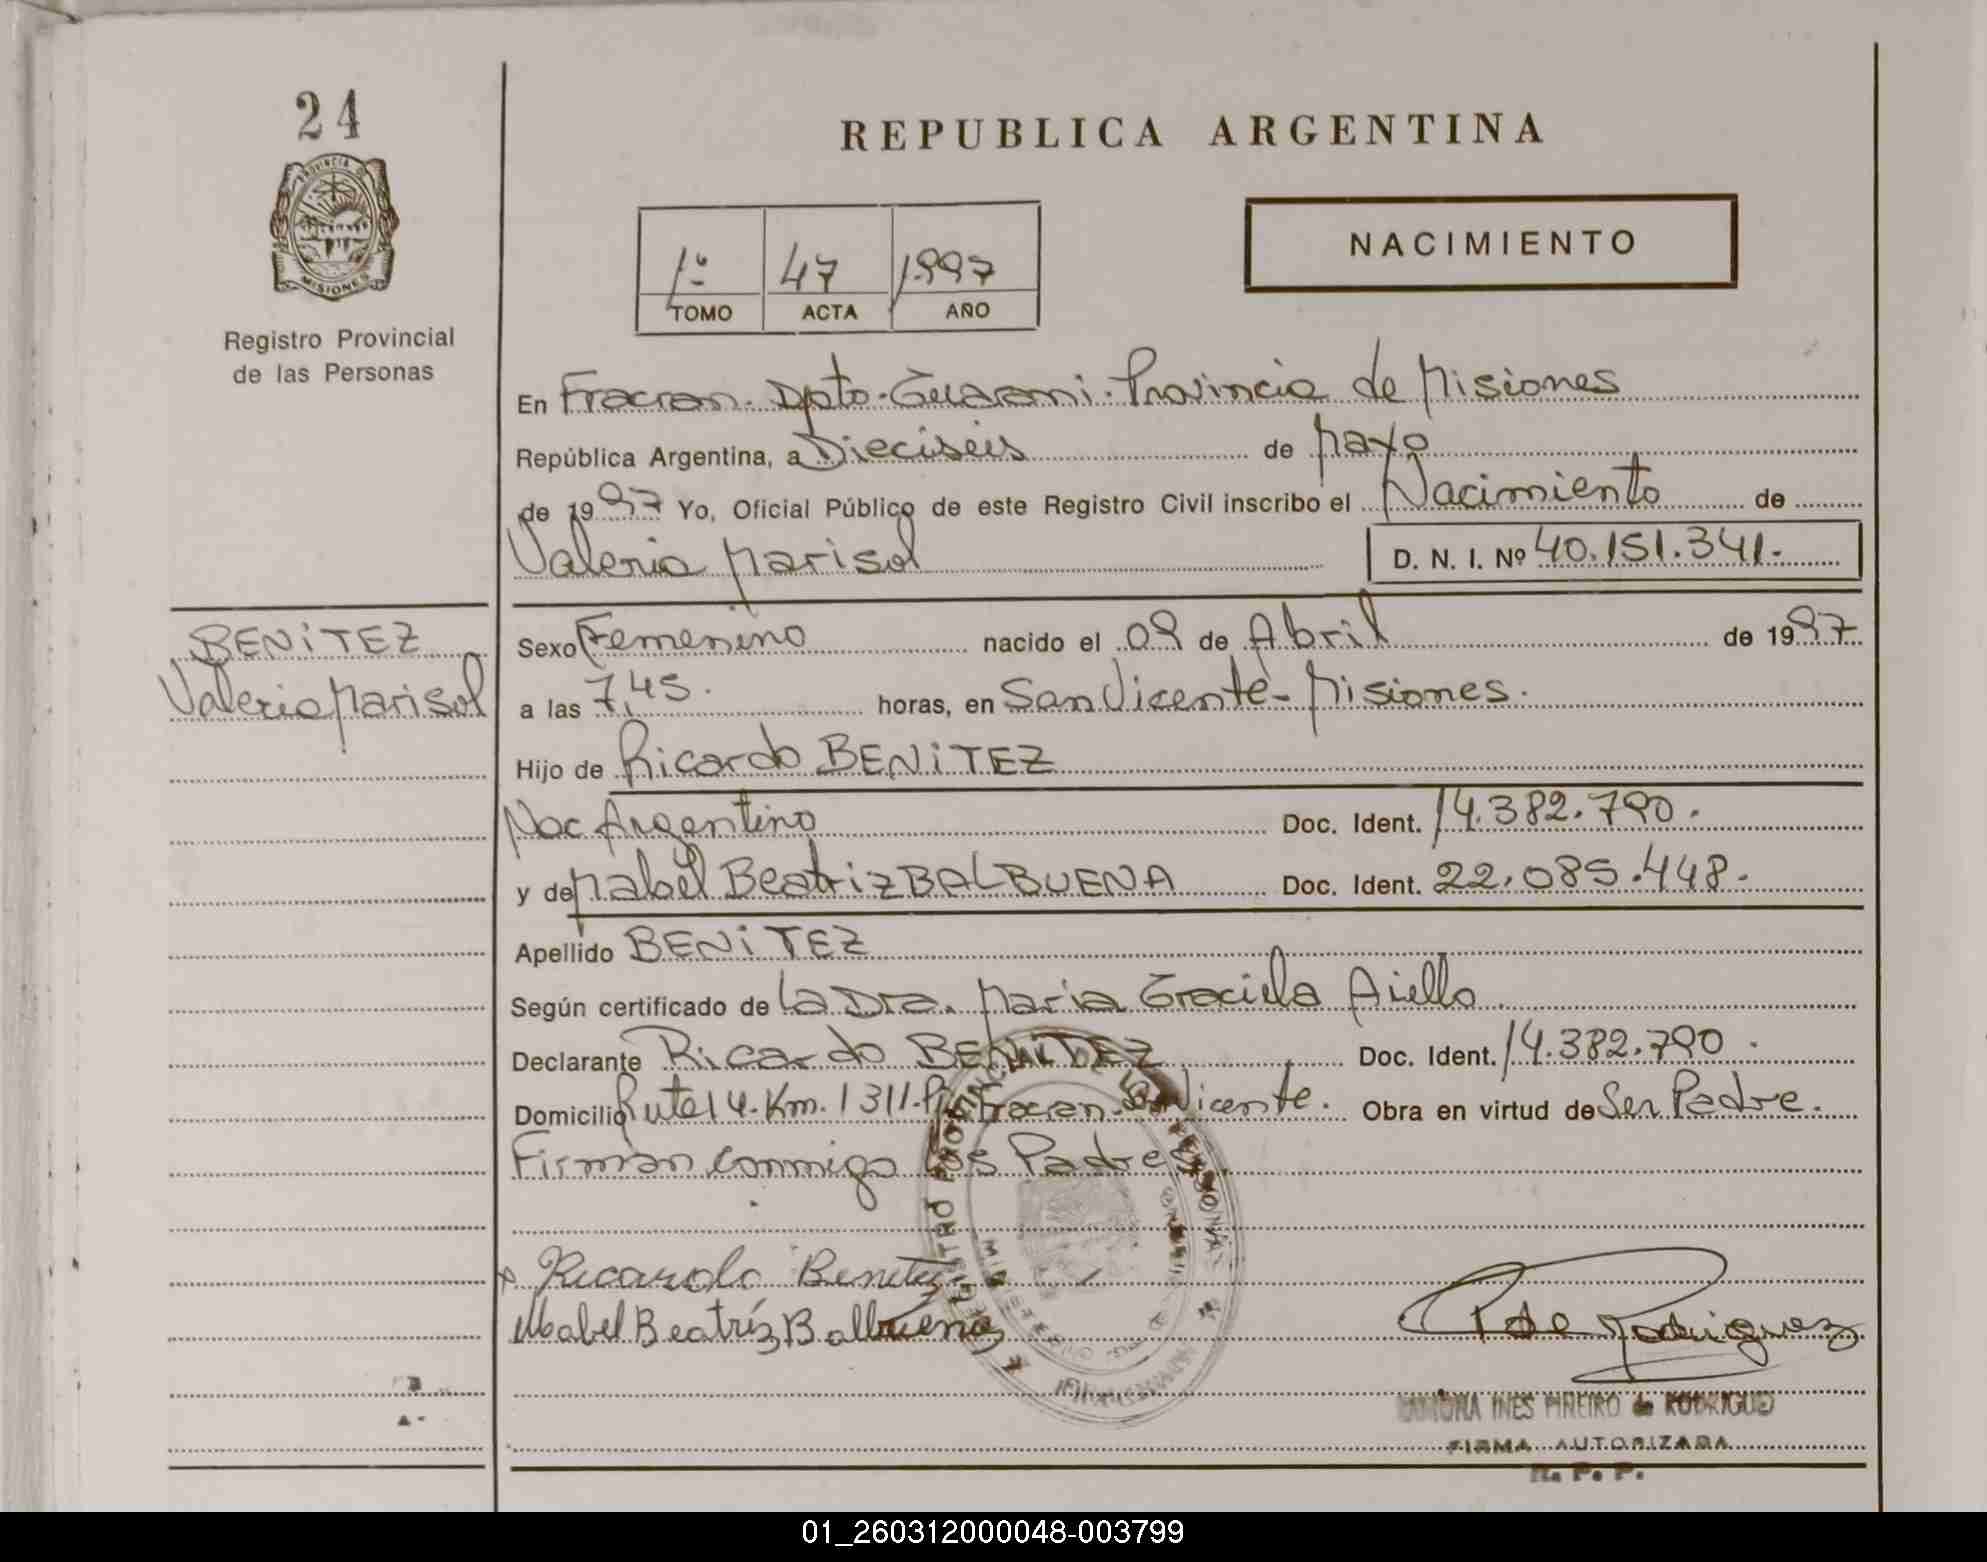 24
PROVINCIA DE
MISIONES
Registro Provincial
de las Personas
REPUBLICA ARGENTINA
NACIMIENTO
1º 47 1997
TOMO ACTA AÑO
En Fracran. Dpto. Guarani. Provincia de Misiones
República Argentina, a Dieciseis de Mayo
de 1997 Yo, Oficial Público de este Registro Civil inscribo el Nacimiento de
Valeria Marisol D. N. I. Nº 40.151.341.
BENiTEZ
Valeria Marisol
Sexo Femenino nacido el 09 de Abril de 1997
a las 7,45. horas, en San Vicente - Misiones.
Hijo de Ricardo BENiTEZ
Nac Argentino Doc. Ident. 14.382.790.
y de Mabel Beatriz BALBUENA Doc. Ident. 22.085.448.
Apellido BENiTEZ
Según certificado de La Dra. Maria Graciela Aiello.
Declarante Ricardo BENiTEZ Doc. Ident. 14.382.790.
Domicilio Ruta 14. Km. 1311. Fracran. San Vicente. Obra en virtud de Ser Padre.
Firman conmigo los Padres.
x Ricardo Benitez
Mabel Beatríz Balbuena
P de Rodriguez
REGISTRO PROVINCIAL DE LAS PERSONAS
RAMONA INES PIÑEIRO de RODRIGUEZ
FIRMA AUTORIZADA
R. P. P.
01_260312000048-003799